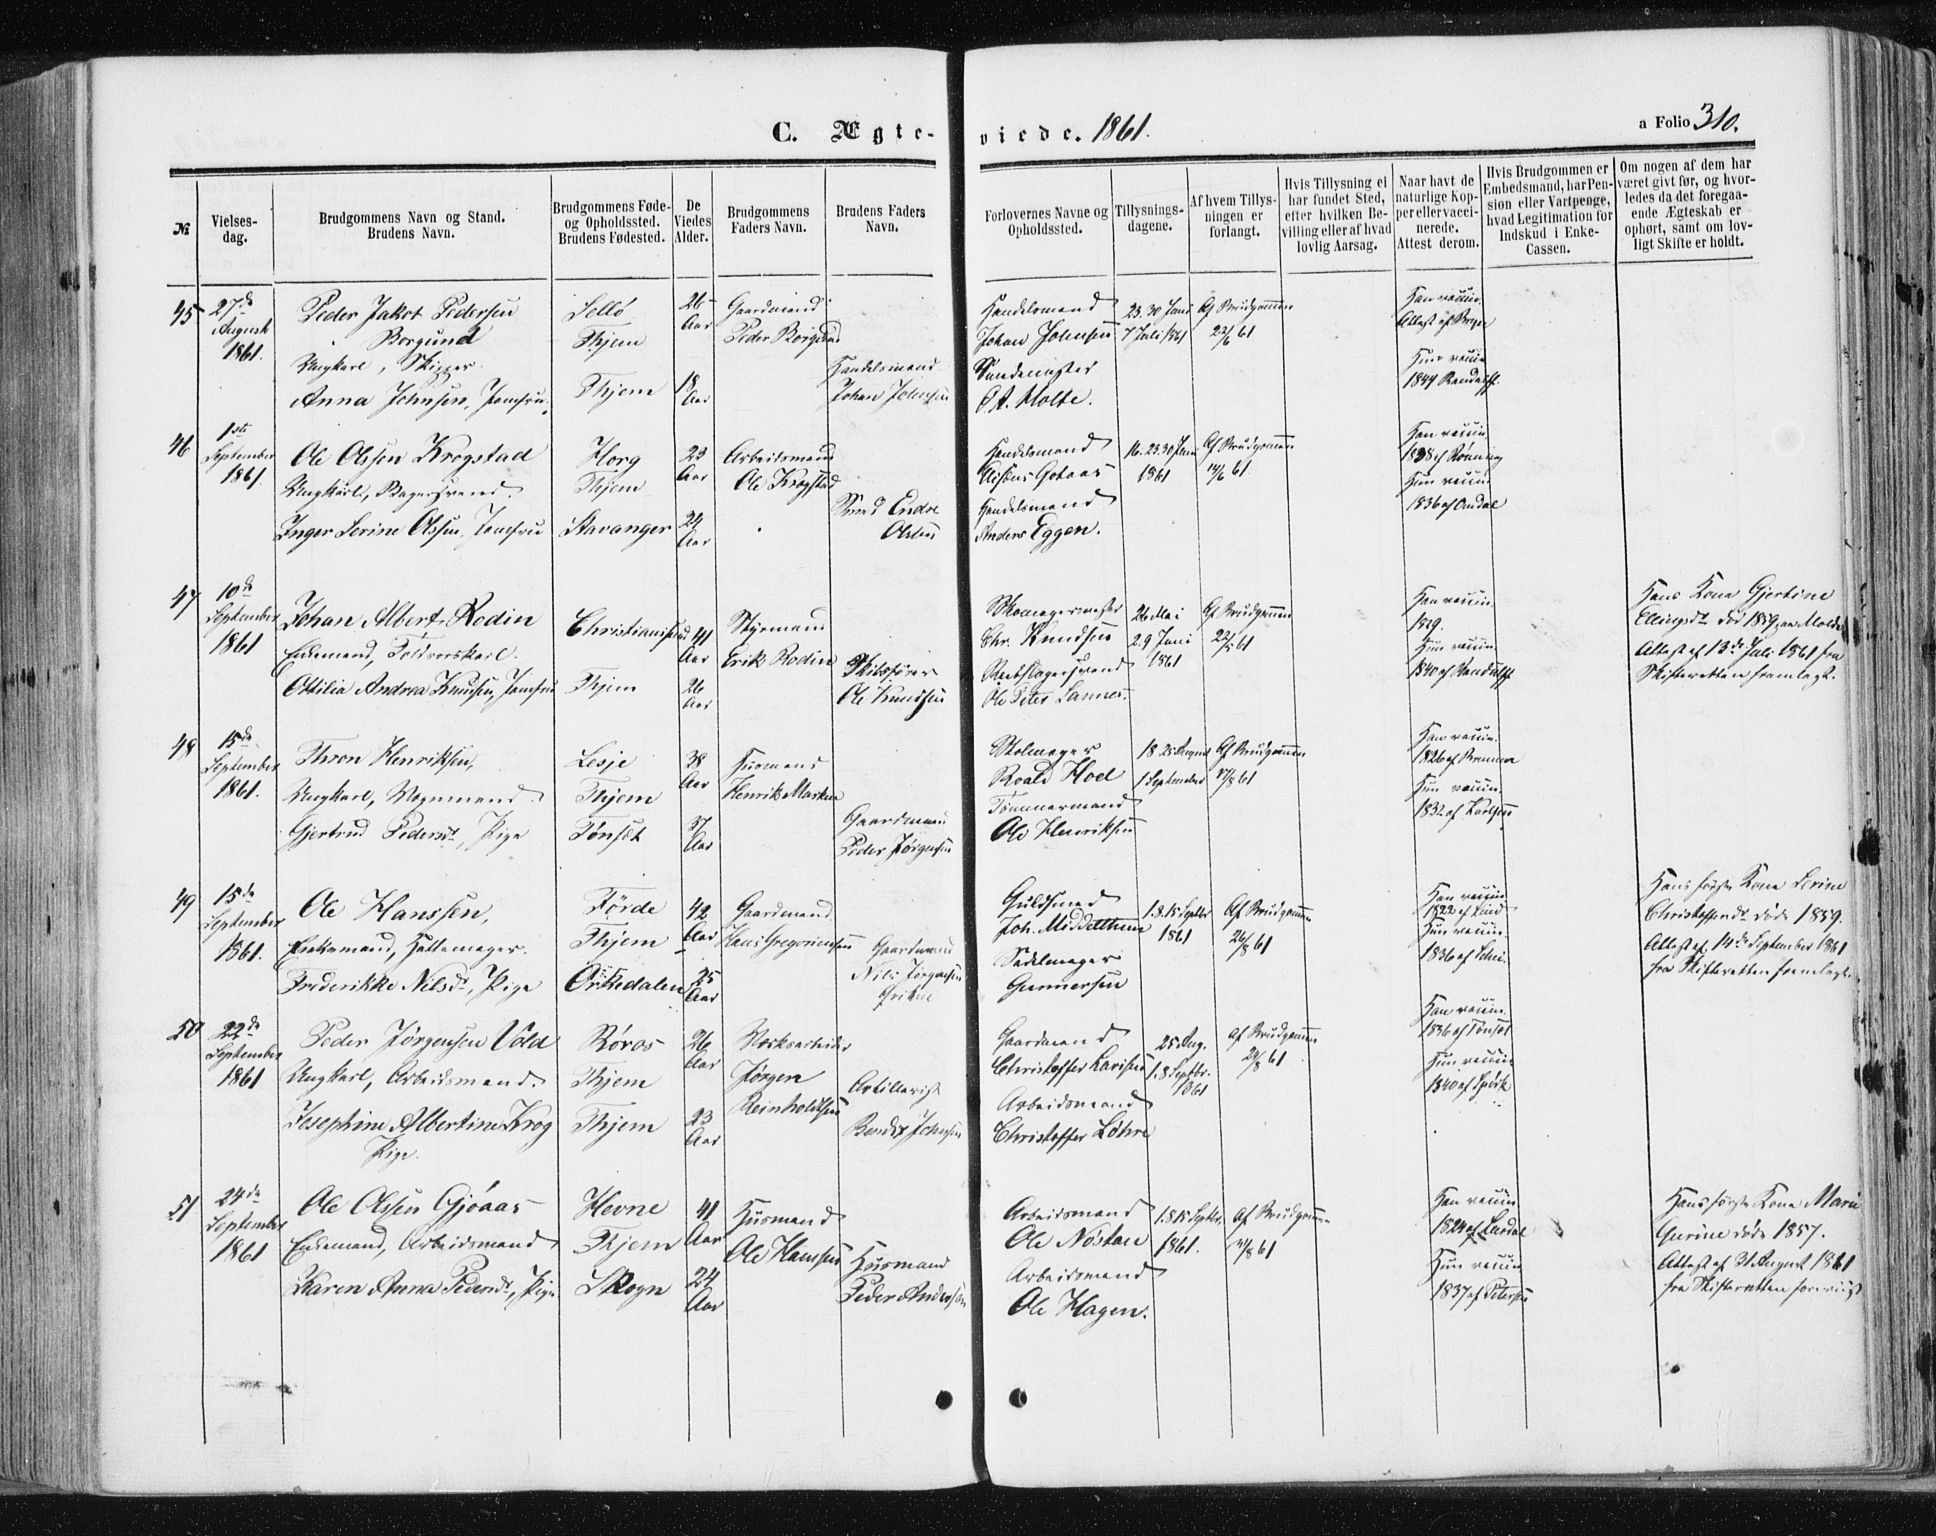 C. Ægte-viede. 1861.
a Folio 310.
№
Vielses-dag.
Brudgommens Navn og Stand.
Brudens Navn.
Brudgommens Føde-og Opholdssted.
Brudens Fødested.
De Viedes Alder.
Brudgommens Faders Navn.
Brudens Faders Navn.
Forlovernes Navne og Opholdssted.
Tillysnings-dagene.
Af hvem Tillys-ningen er forlangt.
Hvis Tillysning ei har fundet Sted, efter hvilken Be-villing eller af hvad lovlig Aarsag.
Naar havt de naturlige Kop-per eller vacci-nerede. Attest derom.
Hvis Brudgommen er Embedsmand, har Pen-sion eller Vartpenge, hvad Legitimation for Indskud i Enke-Cassen.
Om nogen af dem har været givt før, og hvor-ledes da det foregaa-ende Ægteskab er ophørt, samt om lov-ligt Skifte er holdt.
45
27de August 1861.
Peder Jakob Pedersen Borgund
Ungkarl, Skipper.
Anna Johnsen, Jomfru.
Thjem
Thjem
26 Aar
18 Aar
Gaardmand
Peder Borgund
Handelsmand
Johan Johnsen
Handelsmand
Johan Johnsen
Smedemester
23. 30 Juni
7 Juli 1861
Af Brudgommen
22/6 61
Han vaccin.
Hun vaccin.
1844
46
1ste September 1861
Ole Olssen Krogstad
Ungkarl, Bagersvend.
Inger Serine Olssen, Jomfru
Horg
Thjem
Stavanger
23 Aar
24 Aar
Arbeidsmand
Ole Krogstad
Smed Endre Olsen
Handelsmand
Handelsmand
Anders Eggen.
16. 23. 30 Juni
1861
Af Brudgommen
14/6 61
Han vaccin.
1838 af Rønning
Hun vaccin.
1836 af Omdal
47
10de September 1861
Johan Albert Rodin
Enkemand, Toldroerskarl.
Ottilia Andrea Knudsen, Jomfru
Christianssund
Thjem
41 Aar
26 Aar
Styrmand
Erik Rodin
Skibsfører
Ole Knudsen
Skomagermester
Chr. Knudsen
Rebslagersvend
26 Mai
2. 9 Juni
1861
Af Brudgommen
22/5 61
Han vaccin.
Hun vaccin.
Hans Kone Gjertine
Ellingsdt død 1859 paa Molde
Attest af 13de Juli 1861 fra
Skifteretten fremlagt.
48
15de September 1861.
Thron Henriksen,
Ungkarl, Vognmand.
Gjertrud Pedersdt, Pige
Lesje
Thjem
Tønset
38 Aar
37 Aar
Husmand
Gaardmand
Peder Jørgensen
Skomager
Roald Hoel
Tømmermand
Ole Henriksen
18 25 August
1 September
Af Brudgommen
17/8 61
Han vaccin.
Hun vaccin.
1832 af Karlsen
49
15de September 1861.
Ole Hanssen,
Enkemand, Hattemager.
Frederikke Nilsdt, Pige
Førde
Thjem
Orkedalen
42 Aar
25 Aar
Gaardmand
Hans Gregoriussen
Gaardmand
Nils Jørgensen
Guldsmed
Joh. Middelthun
Sadelmager
Gunnersen
1. 8. 15 Septbr
1861
Af Brudgommen
26/8 61
Han vaccin.
1822 af Lund
Hun vaccin.
1836 af
Hans første Kone Serine
Christofersdt døde 1859.
Attest af 14de September 1861
fra Skifteretten fremlagt.
50
22de September 1861
Peder Jørgensen Vold
Ungkarl, Arbeidsmand.
Josephine Albertine Krog
Pige.
Røros
Thjem
Thjem
26 Aar
23 Aar
Værksarbeider
Jørgen Reinholdtsen
Artillerist
Bendix Johnsen
Gaardmand
Christoffer Larissen
Arbeidsmand
Christoffer Løhre
25 Aug.
1. 8 Septbr.
1861
Af Brudgommen
24/8 61
Han vaccin.
1836 af Tønset
Hun vaccin.
1840 af
51
24de September 1861
Ole Olssen Gjøaas
Enkemand, Arbeidsmand
Karen Anna Pedersdt, Pige
Hevne
Thjem
Skogn
41 Aar
24 Aar
Husmand
Ole Hanssen
Husmand
Peder Andersen
Arbeidsmand
Ole Nøstan
Arbeidsmand
Ole Hagen.
1. 8. 15 Septbr.
1861.
Af Brudgommen
Han vaccin.
1824 af Lassdal
Hun vaccin.
1837 af Petersen
Hans første Kone Marie
Gurine døde 1857.
Attest af 31 August 1861
fra Skifteretten foreviist